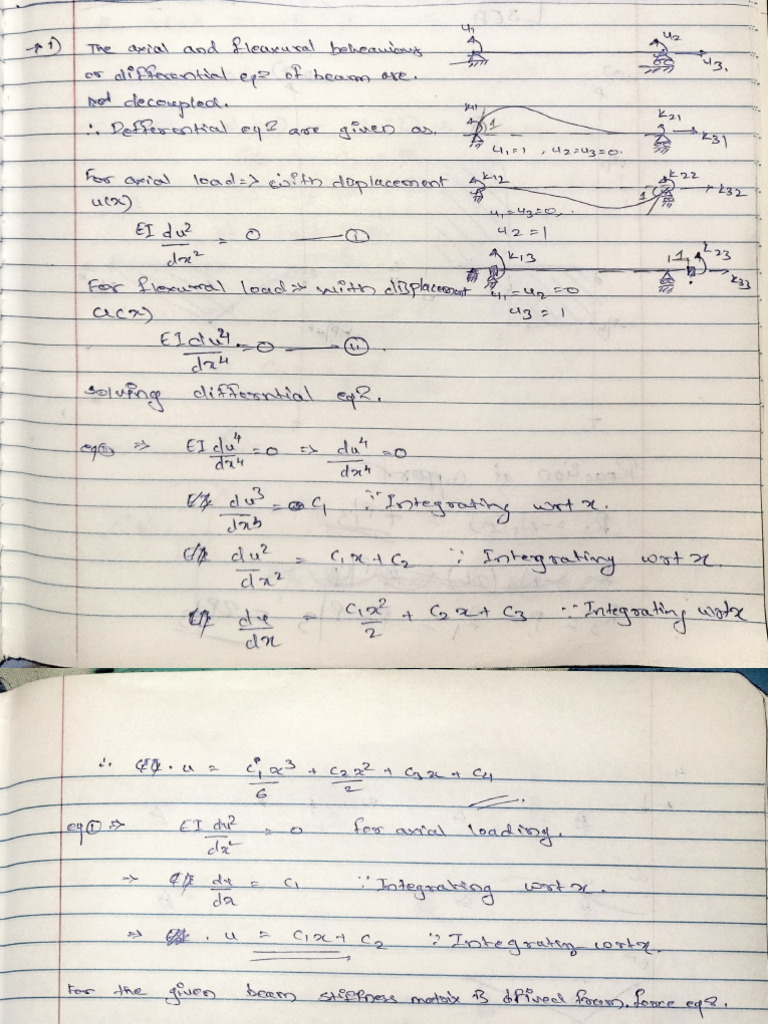 → 1) The axial and fleaxural beheaviour
or differential eqn of beam are.
not decoupled.
∴ Defferential eqn are given as.
For axial load⇒ with displacement
u(x)
EI du²/dx² = 0 — ①
For flexural load⇒ with displacement
u(x)
EI du⁴/dx⁴ = 0 — ⑪.
solving differntial eqn.
eq⑪ ⇒ EI du⁴/dx⁴ = 0 ⇒ du⁴/dx⁴ = 0
du³/dx³ = C₁ ∵ Integrating wrt x.
du²/dx² = C₁x + C₂ ∵ Intergrating wrt x.
du/dx = C₁x²/2 + C₂x + C₃ ∵ Integrating wrt x
u₁
u₂
u₃.
k₁₁
1
k₂₁
k₃₁
u₁=1, u₂=u₃=0.
k₁₂
k₂₂
1
k₃₂
u₁=u₃=0,
u₂=1
k₁₃
1
k₂₃
k₃₃
u₁=u₂=0
u₃=1
∴ . u = C₁x³/6 + C₂x²/2 + C₃x + C₄
eq① ⇒ EI du²/dx² = 0 for axial loading.
⇒ du/dx = C₁ ∵ Integrating wrt x.
⇒ . u = C₁x + C₂ ∵ Integrating wrt x.
For the given beam stiffness matrix is drived from force eqn.